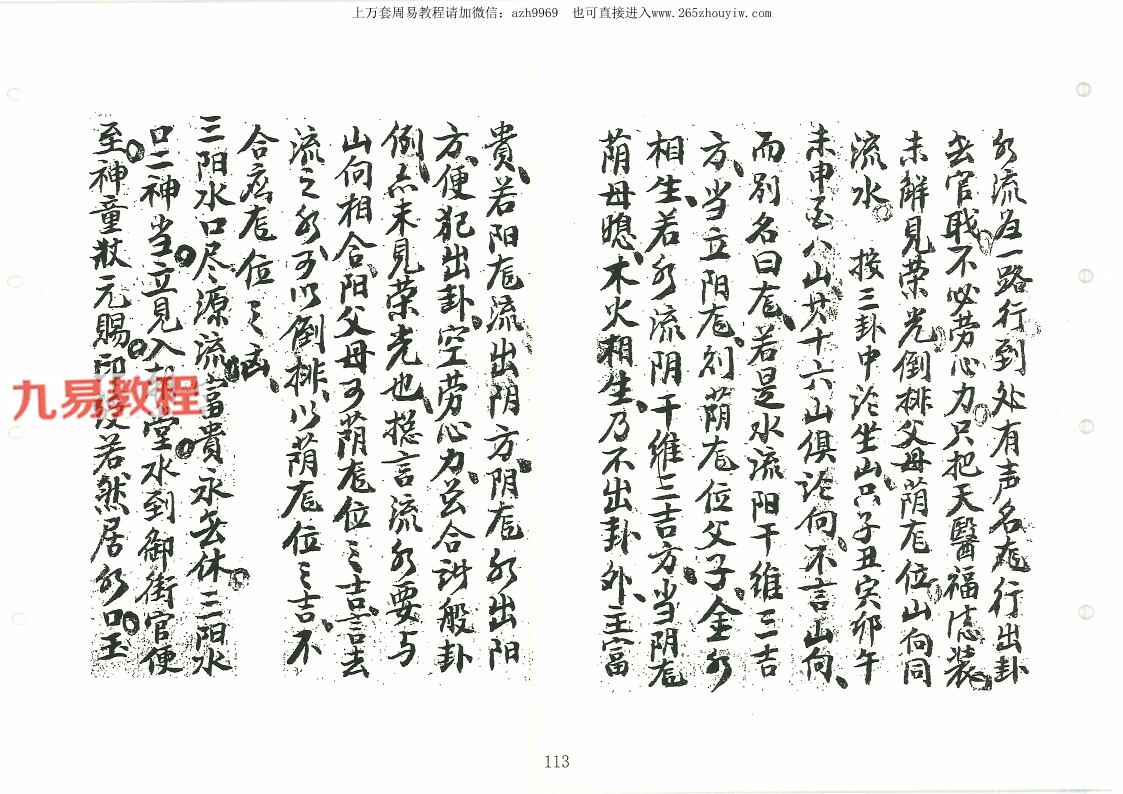 上万套周易教程请加微信: azh9969　也可直接进入www.265zhouyiw.com
水流为一路行到处有声名龙行出卦
无官职不必劳心力只把天醫福德装
未解見荣光倒排父母荫龙位山向同
流水　按三卦中论坐山只子丑寅卯午
未申至八山廿十六山俱论向不言山向
而别名曰龙若是水流阳干维三吉
方当立阳龙则荫龙位父子金水
相生若水流阴干维三吉方当阴龙
荫母媳木火相生乃不出卦外主富
貴若阳龙流出阴方阴龙水出阳
方便犯出卦空劳心力云合此般卦
例亦未見荣光也捴言流水要与
山向相合阳父母可荫龙位之吉言去
流之水可以倒排以荫龙位之吉不
合应龙位之凶
三阳水口尽源流富貴永无休二阳水
口二神当立見入堂水到御街官便
至神童状元赐若然居水口玉
九易教程
113